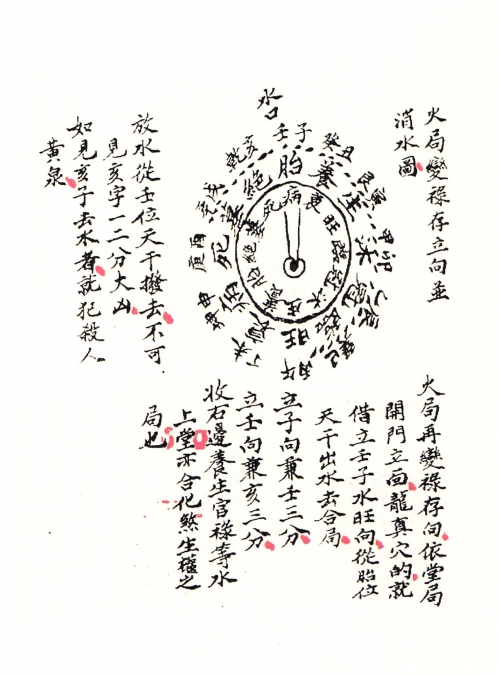 火局變祿存立向並
消水圖
水口
壬子
癸丑
艮寅
甲卯
乙辰
巽巳
丙午
丁未
坤申
庚酉
辛戌
乾亥
胎
養
生
冠
旺
病
絕
病
衰
旺
冠
生
養
胎
絕
死
放水從壬位天干撥去不可
見亥字一二分大凶
如見亥子去水者就犯殺人
黃泉
火局再變祿存向依堂局
開門立面龍真穴的就
借立壬子水旺向從胎位
天干出水去合局
立子向兼壬三分
立壬向兼亥三分
收右邊養生官祿等水
上堂亦合化煞生權之
局也